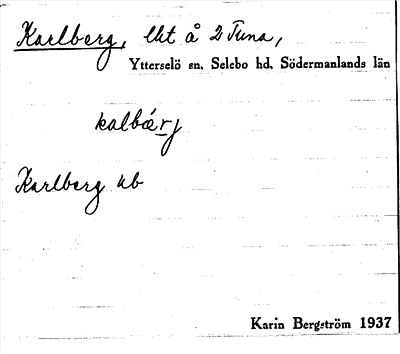 Karlberg, lht å 2 Tuna,
Ytterselö sn, Selebo hd, Södermanlands län
kalbárj
Karlberg kb
Karin Bergström 1937